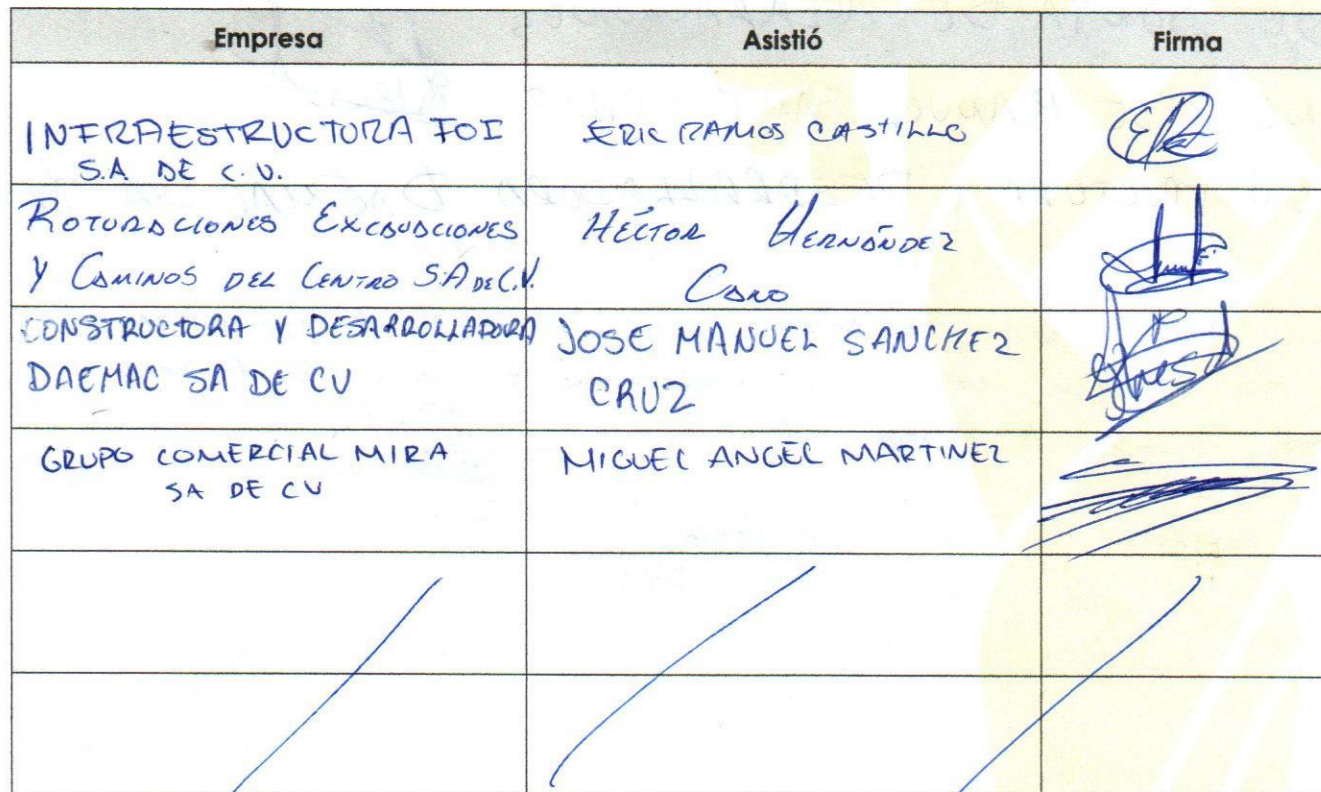 Empresa Asistió Firma
INFRAESTRUCTURA FOI
S.A. DE C.V.
ERIC RAMOS CASTILLO
ROTURACIONES EXCAVACIONES
Y CAMINOS DEL CENTRO S.A DE C.V.
HÉCTOR HERNÁNDEZ
CANO
CONSTRUCTORA Y DESARROLLADORA
DAEMAC SA DE CV
JOSE MANUEL SANCHEZ
CRUZ
GRUPO COMERCIAL MIRA
SA DE CV
MIGUEL ANGEL MARTINEZ